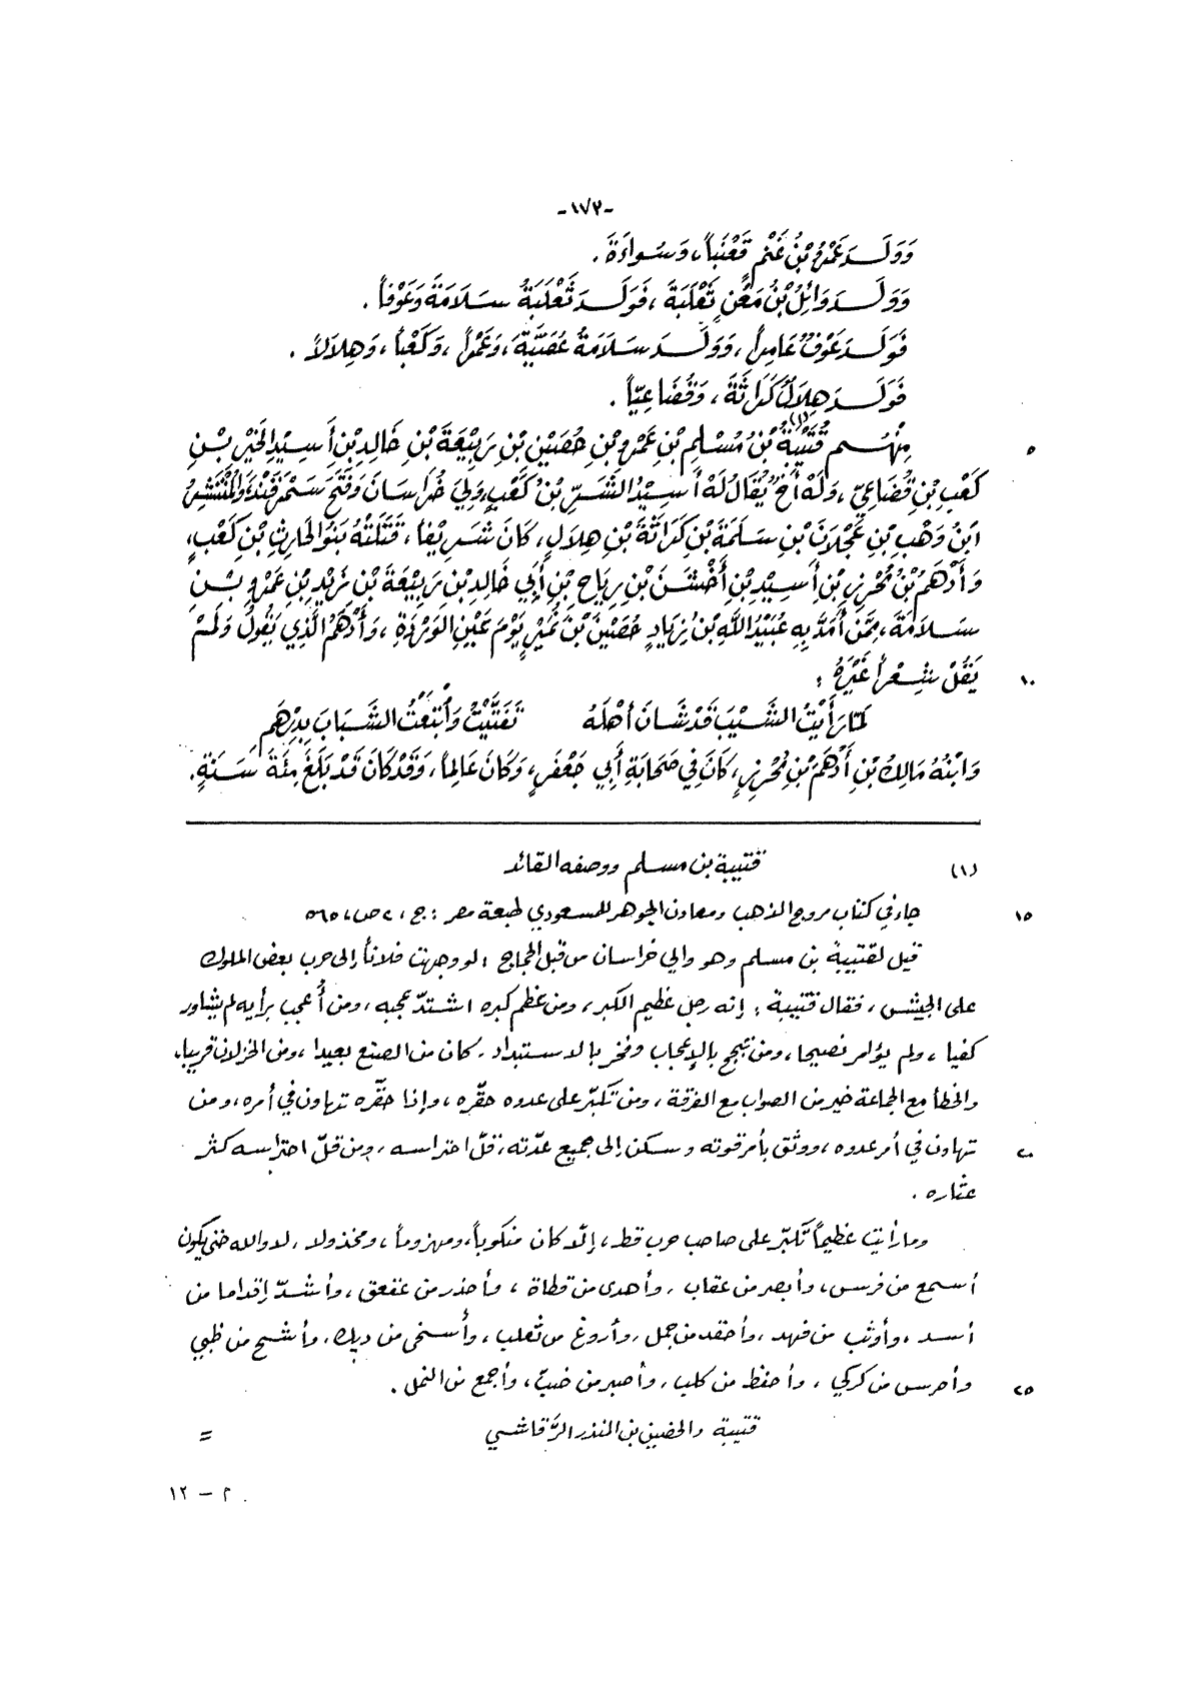 -١٧٢-
وَوَلَدَ عَمْرُو بْنُ غَنْمٍ قَعْنَباً، وَسُواءَةَ.
وَوَلَدَ وَائِلُ بْنُ مَعْنٍ ثَعْلَبَةَ، فَوَلَدَ ثَعْلَبَةُ سَلَامَةَ وَعَوْفاً.
فَوَلَدَ عَوْفٌ عَامِراً، وَوَلَدَ سَلَامَةُ عُصَيَّةَ، وَعَمْراً، وَكَعْباً، وَهِلَالاً.
فَوَلَدَ هِلَالٌ كَرَاثَةَ، وَقُضَاعِيّاً.
٥ مِنْهُم قُتَيْبَةُ(١) بْنُ مُسْلِمِ بْنِ عَمْرِو بْنِ حُصَيْنِ بْنِ رَبِيْعَةَ بْنِ خَالِدِ بْنِ أَسِيْدِ الخَيْرِ بْنِ
كَعْبِ بْنِ قُضَاعِيٍّ، وَلَهُ أَخٌ يُقَالُ لَهُ أَسِيْدُ الشَّرِّ بْنُ كَعْبٍ، وَلِيَ خُرَاسَانَ وَفَتَحَ سَمَرْقَنْدَ، وَالمُنْتَشِرُ
ابْنُ وَهْبِ بْنِ عَجْلَانَ بْنِ سَلَمَةَ بْنِ كَرَاثَةَ بْنِ هِلَالٍ، كَانَ شَرِيْفاً، قَتَلَتْهُ بَنُو الحَارِثِ بْنِ كَعْبٍ،
وَأَدْهَمُ بْنُ مُحْرِزِ بْنِ أَسِيْدِ بْنِ أَخْشَنَ بْنِ رِيَاحِ بْنِ أَبِي خَالِدِ بْنِ رَبِيْعَةَ بْنِ زَيْدِ بْنِ عَمْرِو بْنِ
سَلَامَةَ، مِمَّنْ أَمَدَّ بِهِ عُبَيْدُ اللَّهِ بْنُ زِيَادٍ حُصَيْنَ بْنَ نُمَيْرٍ يَوْمَ عَيْنِ الوَرْدَةِ، وَأَدْهَمُ الَّذِي يَقُولُ وَلَمْ
١٠ يَقُلْ شِعْراً غَيْرَهُ:
لَمَّا رَأَيْتُ الشَّيْبَ قَدْ شَانَ أَهْلَهُ تَفَتَّيْتُ وَابْتَعْتُ الشَّبَابَ بِدِرْهَمِ
وَابْنُهُ مَالِكُ بْنِ أَدْهَمَ بْنِ مُحْرِزٍ، كَانَ فِي صَحَابَةِ أَبِي جَعْفَرٍ، وَكَانَ عَالِماً، وَقَدْ كَانَ قَدْ بَلَغَ مِئَةَ سَنَةٍ.
(١) قتيبة بن مسلم ووصفه القائد
١٥ جاء في كتاب مروج الذهب ومعادن الجوهر للمسعودي طبعة مصر: ج، ٢ ص، ٥٦٥
قيل لقتيبة بن مسلم وهو والي خراسان من قبل الحجاج: لو وجهت فلاناً إلى حرب بعض الملوك
على الجيش، فقال قتيبة: إنه رجل عظيم الكبر، ومن عظم كبره اشتدّ عجبه، ومن أُعجب برأيه لم يشاور
كفيا، ولم يؤامر نصيحا، ومن تبجح بالإعجاب وفخر بالاستبداد. كان من الصنع بعيدا، ومن الخذلان قريبا،
والخطأ مع الجماعة خير من الصواب مع الفرقة، ومن تكبّر على عدوه حقّره، وإذا حقّره تهاون في أمره، ومن
٢٠ تهاون في أمر عدوه، ووثق بأمر قوته وسكن إلى جميع عدّته، قلّ احتراسه، ومن قلّ احتراسه كثر
عثاره.
وما رأيت عظيماً تكبّر على صاحب حرب قط، إلّا كان منكوباً، ومهزوماً، ومخذولا، لا والله حتى يكون
أسمع من فرس، وأبصر من عقاب، وأهدى من قطاة، وأحذر من عقعق، وأشدّ إقداما من
أسد، وأوثب من فهد، وأحقد من جمل، وأروغ من ثعلب، وأسخى من ديك، وأشح من ظبي
٢٥ وأحرس من كركي، وأحفظ من كلب، وأصبر من ضبّ، وأجمع من النمل.
قتيبة والحضين بن المنذر الرّقاشي =
م – ١٢